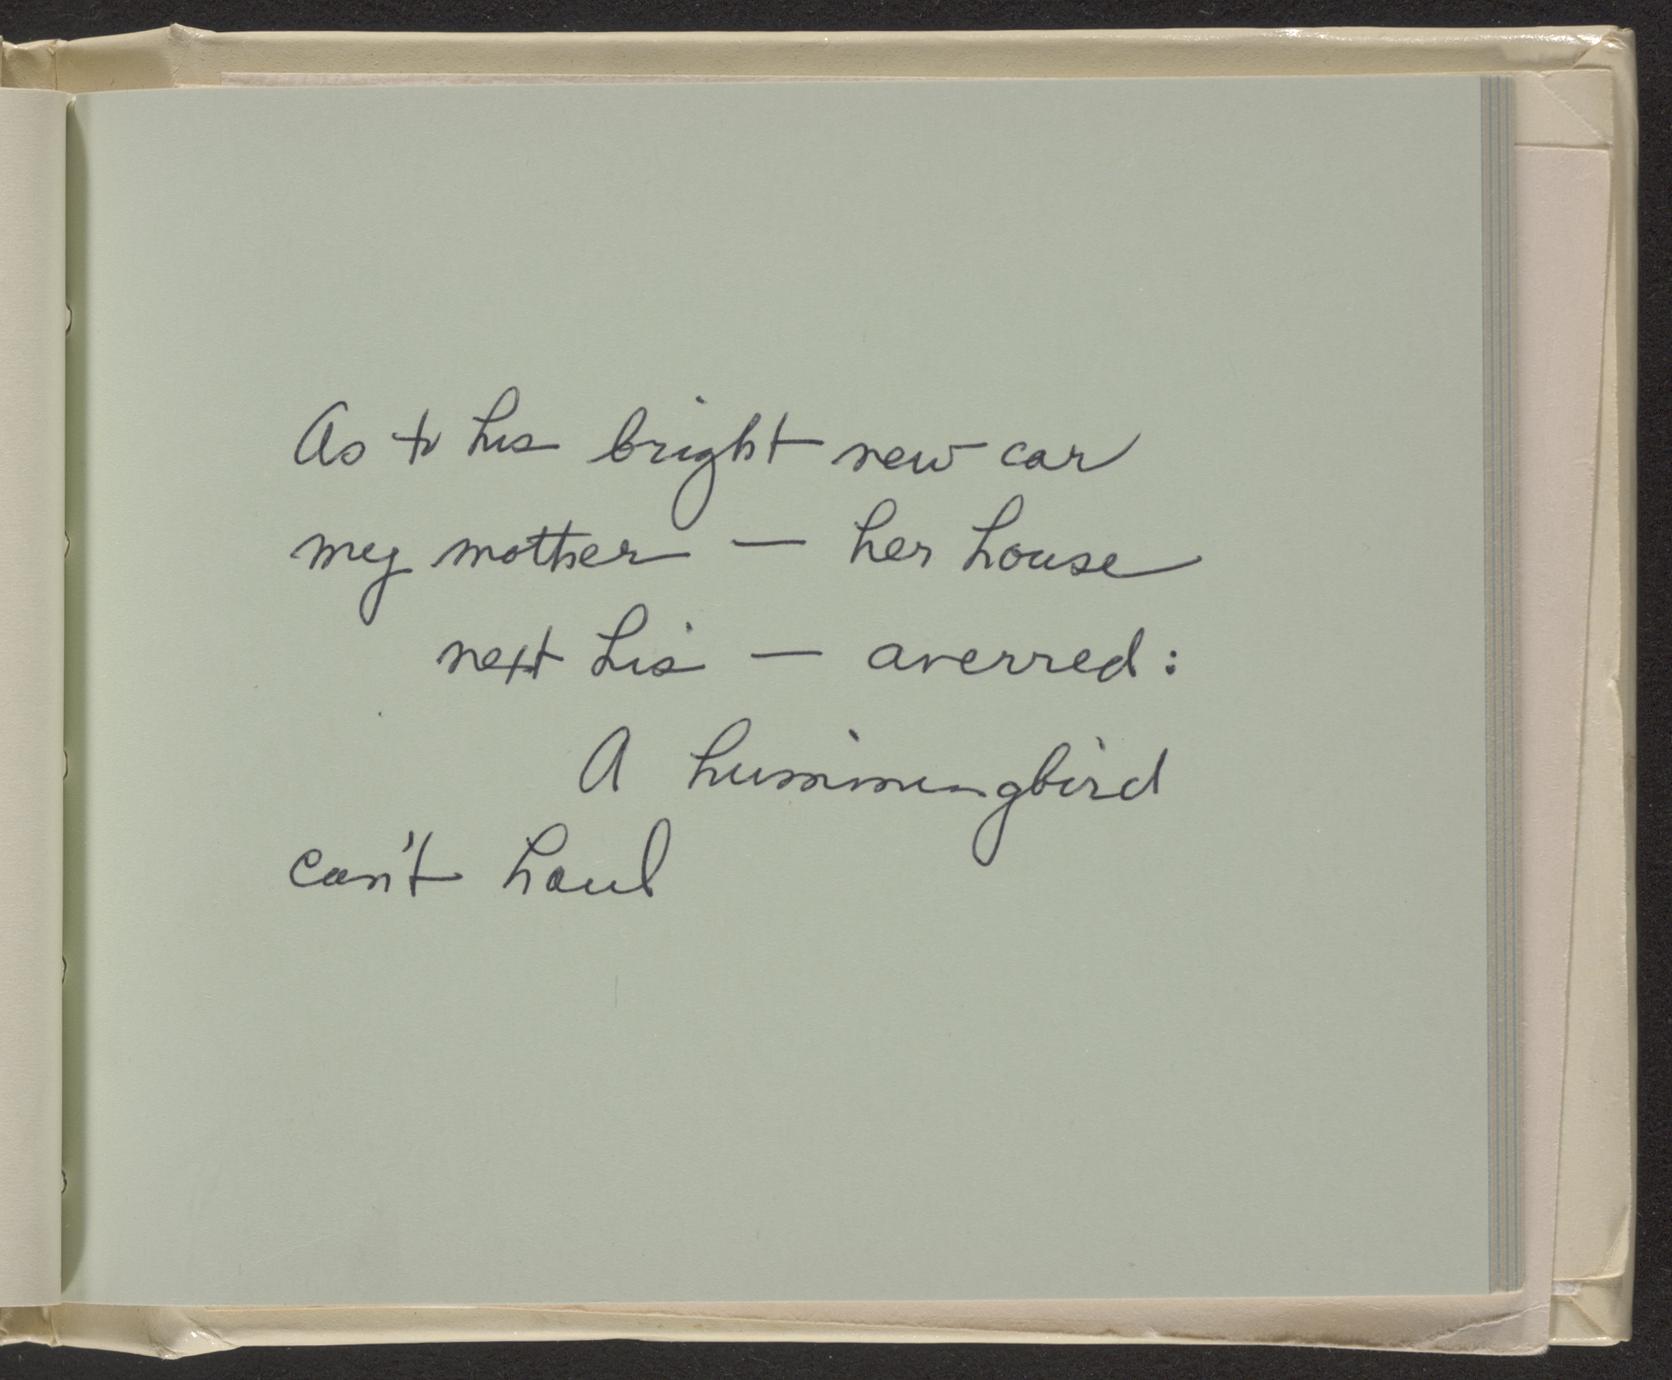 As to his bright new car
my mother — her house
next his — averred:
A hummingbird
can't haul